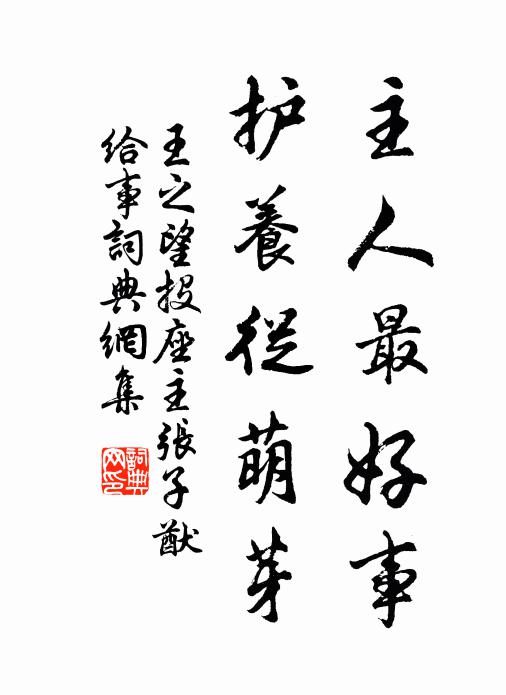 主人最好事
护養從萌芽
王之望投座主張子猷
给事詞典網集
詞典网印